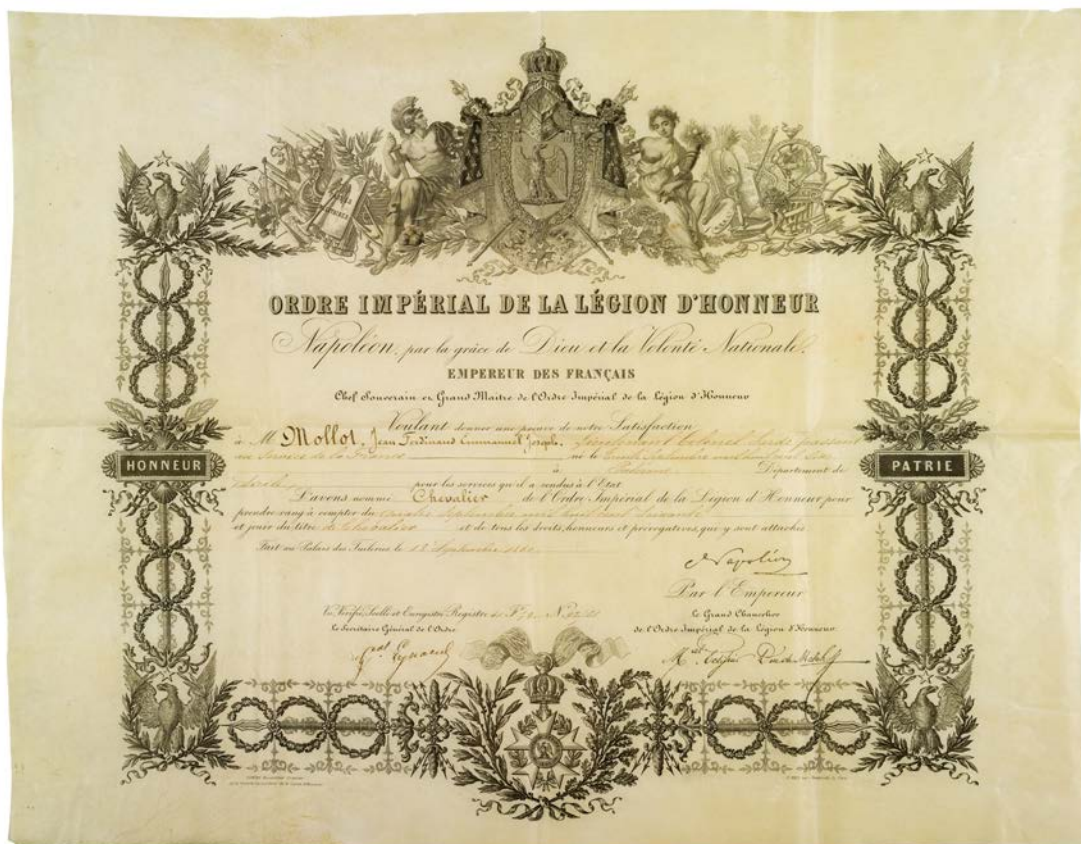 ORDRE IMPÉRIAL DE LA LÉGION D'HONNEUR
Napoléon, par la grâce de Dieu et la Volonté Nationale,
EMPEREUR DES FRANÇAIS
Chef Souverain et Grand Maître de l'Ordre Impérial de la Légion d'Honneur
Voulant donner une preuve de notre Satisfaction
à M Mollot, Jean Ferdinand Emmanuel Joseph, Lieutenant Colonel Sarde passant
au Service de la France né le Septembre mil huit cent
à Département de
pour les services qu'il a rendus à l'État
L'avons nommé Chevalier de l'Ordre Impérial de la Légion d'Honneur pour
prendre rang à compter du Septembre mil huit cent soixante
et jouir du titre de Chevalier et de tous les droits, honneurs et prérogatives, qui y sont attachés
Fait au Palais des Tuileries le 12 Septembre 1860
Napoléon
Par l'Empereur
Vu Vérifié, Scellé et Enregistré Registre F° N°
le Grand Chancelier
Le Secrétaire Général de l'Ordre
de l'Ordre Impérial de la Légion d'Honneur
HONNEUR
PATRIE